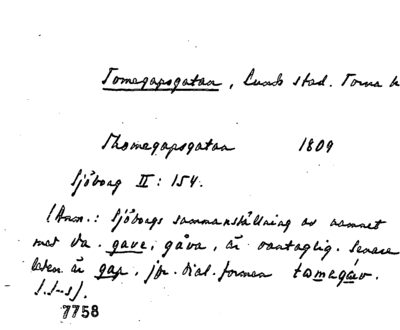 Tomegapsgatan, Lunds stad. Torna h
Thomegapsgatan 1809
Sjöborg II: 154.
(Anm.: Sjöborgs sammanställning av namnet
med da. gave, gåva, är oantaglig. Senare
leden är gap, jfr. dial. formen tomegav.
J. S-s).
7758